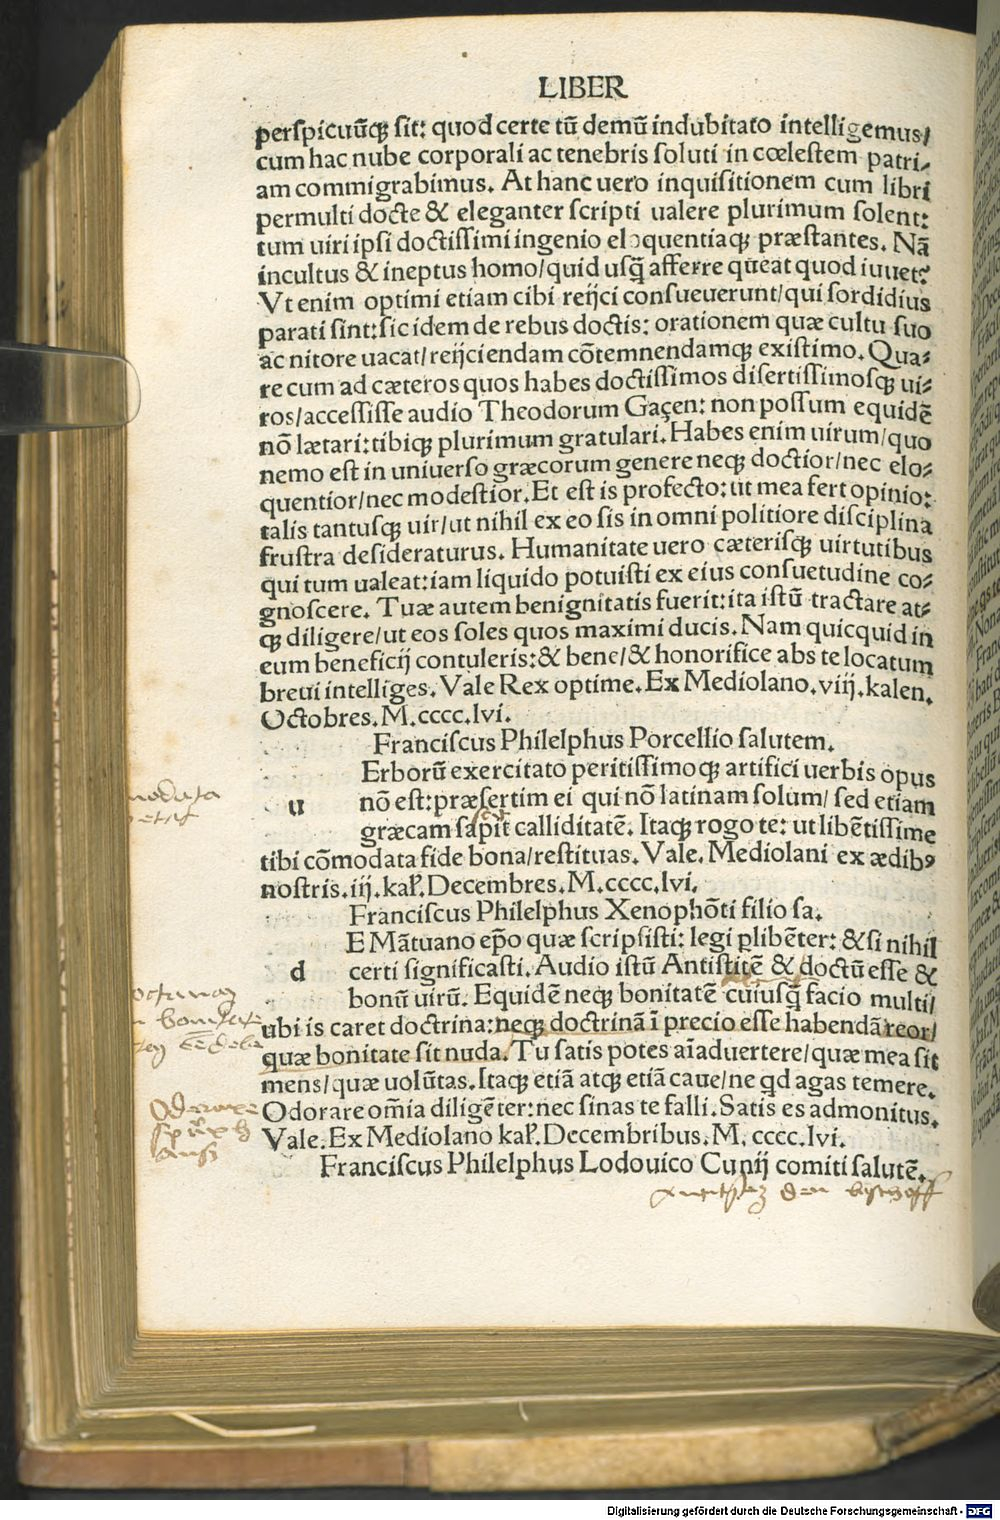 LIBER
perſpicuũq; ſit: quod certe tũ demũ indubitato intelligemus/
cum hac nube corporali ac tenebris ſoluti in cœleſtem patri-
am commigrabimus. At hanc uero inquiſitionem cum libri
permulti docte & eleganter ſcripti ualere plurimum ſolent:
tum uiri ipſi doctiſſimi ingenio eloquentiaq; præſtantes. Nã
incultus & ineptus homo/quid uſq̃ afferre queat quod iuuet?
Vt enim optimi etiam cibi reijci conſueuerunt/qui ſordidius
parati ſint: ſic idem de rebus doctis: orationem quæ cultu ſuo
ac nitore uacat/reijciendam cõtemnendamq; exiſtimo. Qua-
re cum ad cæteros quos habes doctiſſimos diſertiſſimoſq; ui-
ros/acceſſiſſe audio Theodorum Gaçen: non poſſum equidẽ
nõ lætari: tibiq; plurimum gratulari. Habes enim uirum/quo
nemo eſt in uniuerſo græcorum genere neq; doctior/nec elo-
quentior/nec modeſtior. Et eſt is profecto: ut mea fert opinio:
talis tantuſq; uir/ut nihil ex eo ſis in omni politiore diſciplina
fruſtra deſideraturus. Humanitate uero cæteriſq; uirtutibus
qui tum ualeat: iam liquido potuiſti ex eius conſuetudine co-
gnoſcere. Tuæ autem benignitatis fuerit: ita iſtũ tractare at-
q; diligere/ut eos ſoles quos maximi ducis. Nam quicquid in
eum beneficij contuleris: & bene/& honorifice abs te locatum
breui intelliges. Vale Rex optime. Ex Mediolano. viij. kalen.
Octobres. M. cccc. lvi.
Franciſcus Philelphus Porcellio ſalutem.
Erborũ exercitato peritiſſimoq; artifici uerbis opus
u nõ eſt: præſertim ei qui nõ latinam ſolum/ ſed etiam
græcam ſapit calliditatẽ. Itaq; rogo te: ut libẽtiſſime
tibi cõmodata fide bona/reſtituas. Vale. Mediolani ex ædibꝰ
noſtris. iij. kal. Decembres. M. cccc. lvi.
Franciſcus Philelphus Xenophõti filio ſa.
E Mãtuano ep̃o quæ ſcripſiſti: legi ꝑlibẽter: & ſi nihil
d certi ſignificaſti. Audio iſtũ Antiſtitẽ & doctũ eſſe &
bonũ uirũ. Equidẽ neq; bonitatẽ cuiuſq̃ facio multi/
ubi is caret doctrina: neq; doctrinã ĩ precio eſſe habendã reor/
quæ bonitate ſit nuda. Tu ſatis potes aĩaduertere/quæ mea ſit
mens/quæ uolũtas. Itaq; etiã atq; etiã caue/ne qd agas temere.
Odorare om̃ia diligẽter: nec ſinas te falli. Satis es admonitus.
Vale. Ex Mediolano kal. Decembribus. M. cccc. lvi.
Franciſcus Philelphus Lodouico Cunij comiti ſalutẽ.
Digitalisierung gefördert durch die Deutsche Forschungsgemeinschaft - DFG